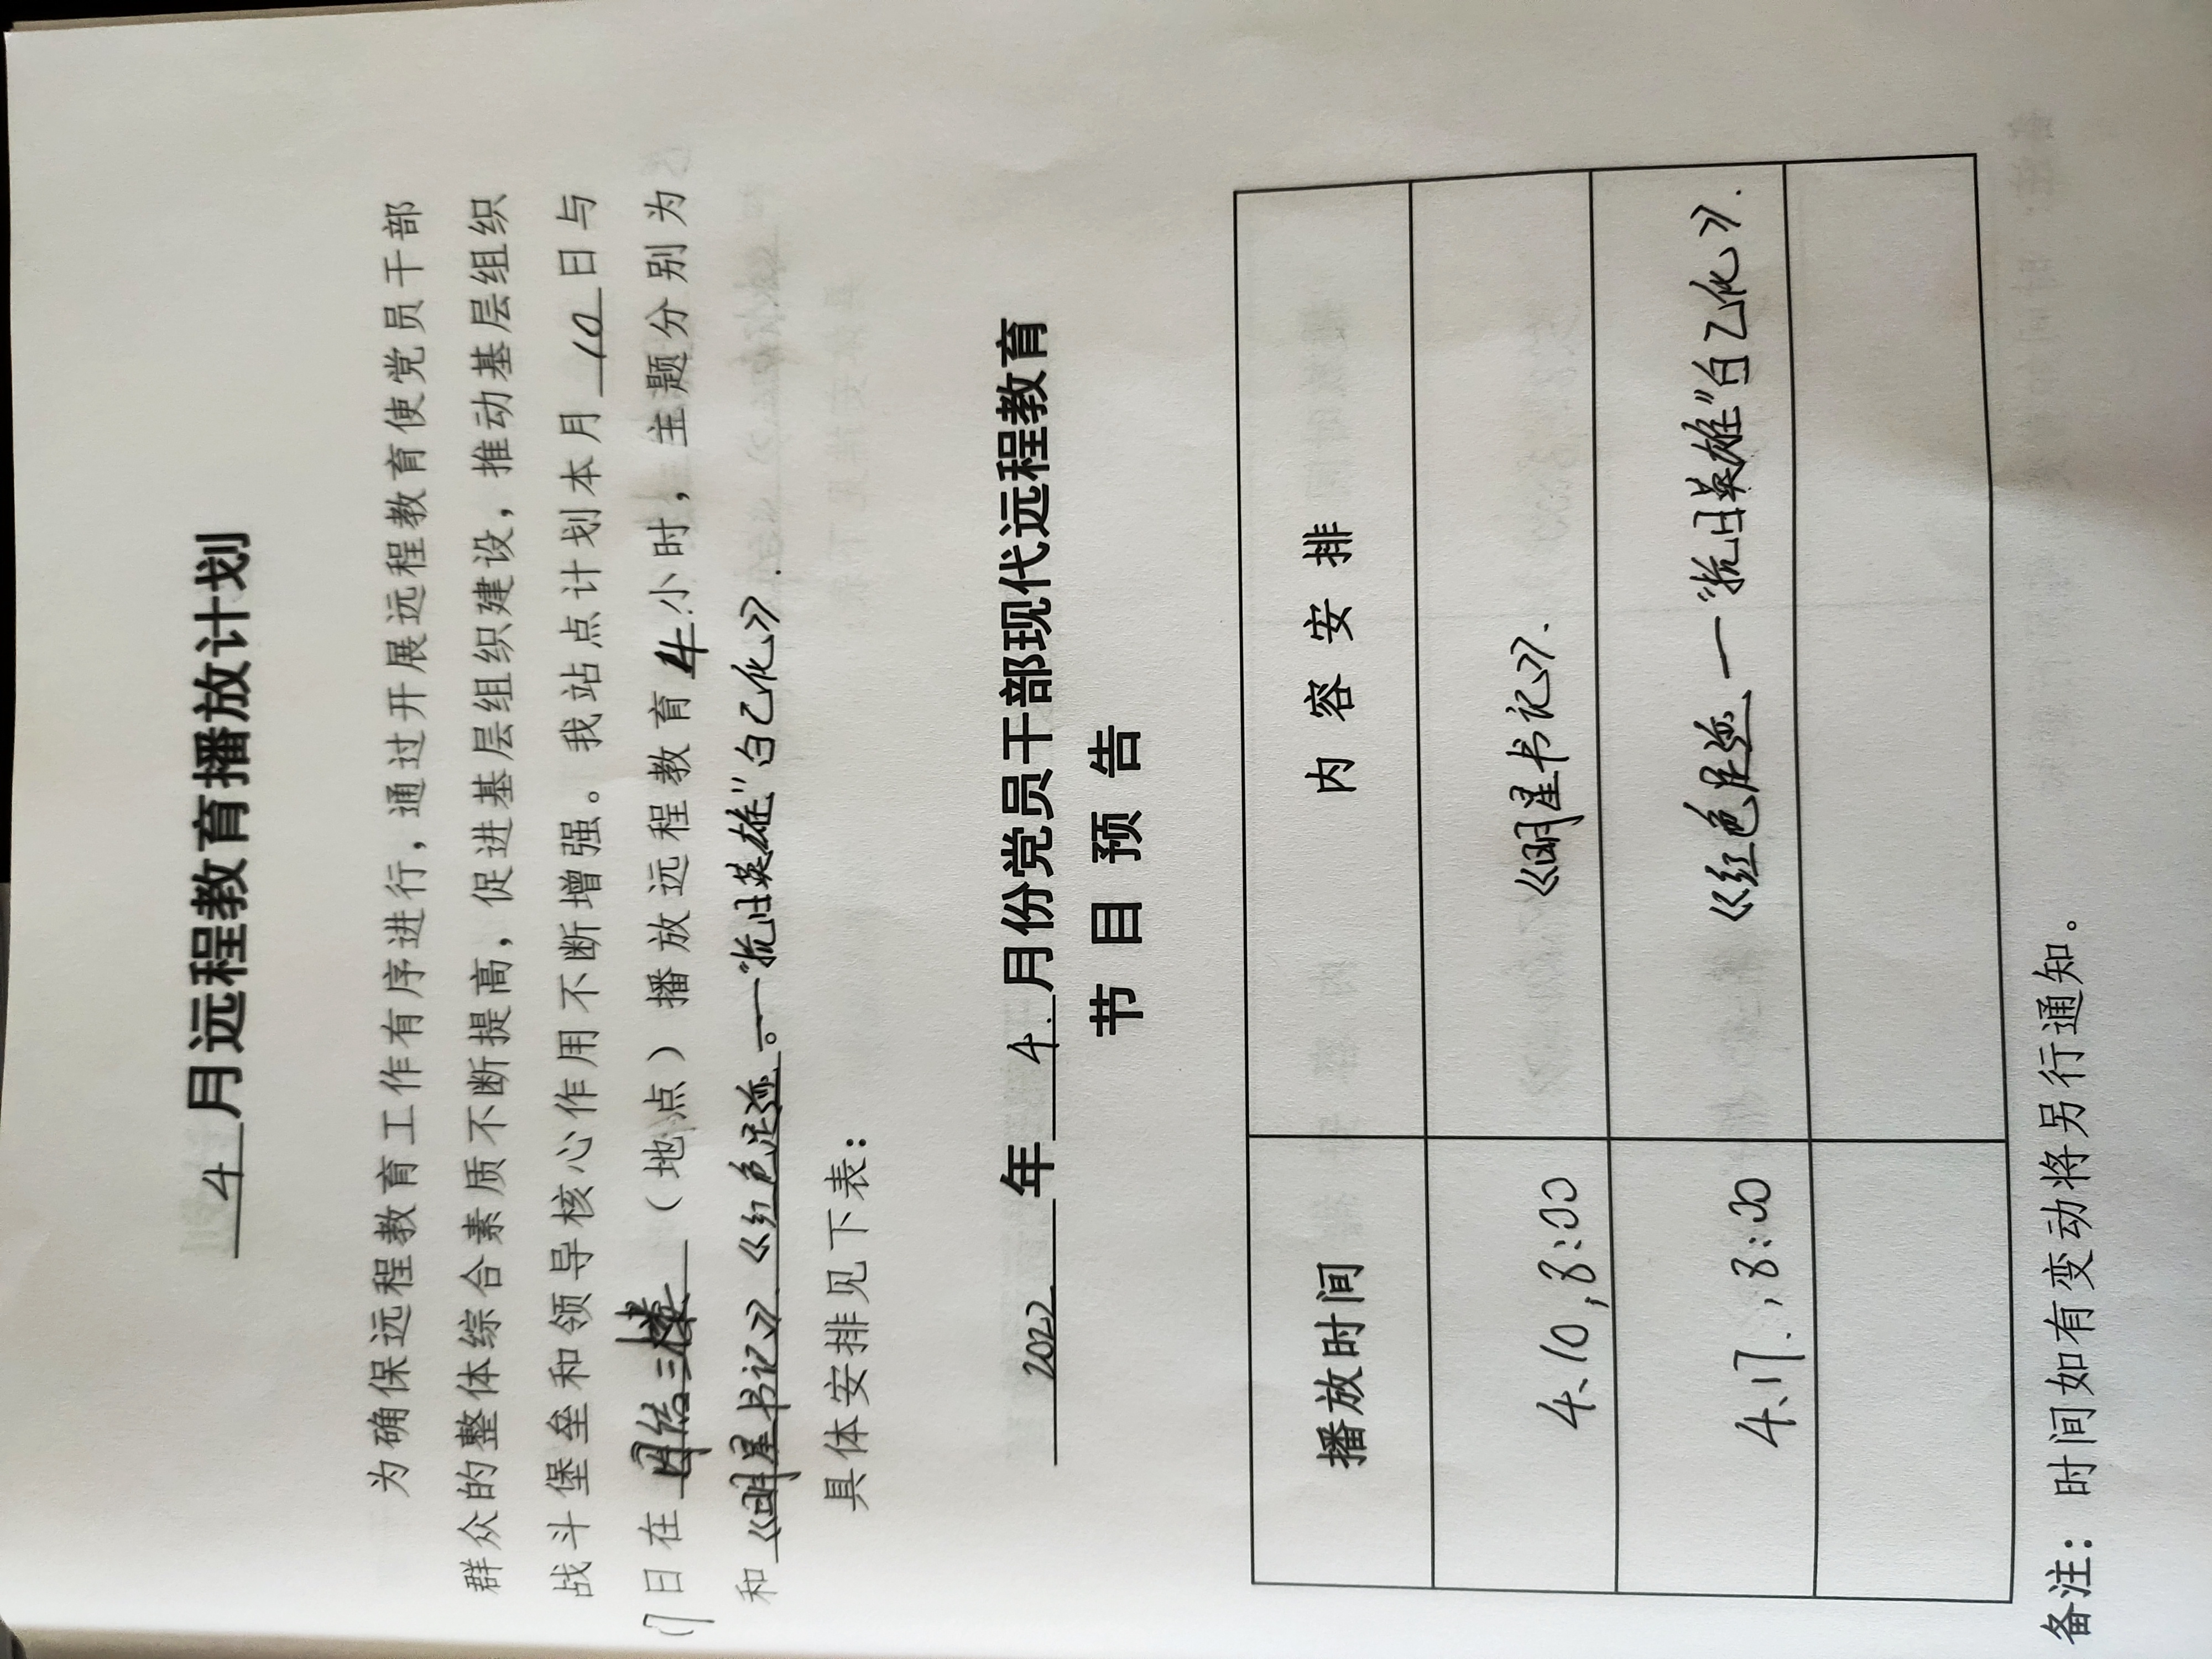 4 月远程教育播放计划
为确保远程教育工作有序进行，通过开展远程教育使党员干部
群众的整体综合素质不断提高，促进基层组织建设，推动基层组织
战斗堡垒和领导核心作用不断增强。我站点计划本月 10 日与
17日在 三楼 （地点）播放远程教育 4 小时，主题分别为
和《明星书记》《红色足迹。—“抗日英雄”白乙化》.
具体安排见下表：
2022 年 4. 月份党员干部现代远程教育
节 目 预 告
播放时间 内 容 安 排
4.10, 8:00 《明星书记》.
4.17., 8:00 《红色足迹—“抗日英雄”白乙化》.
备注：时间如有变动将另行通知。